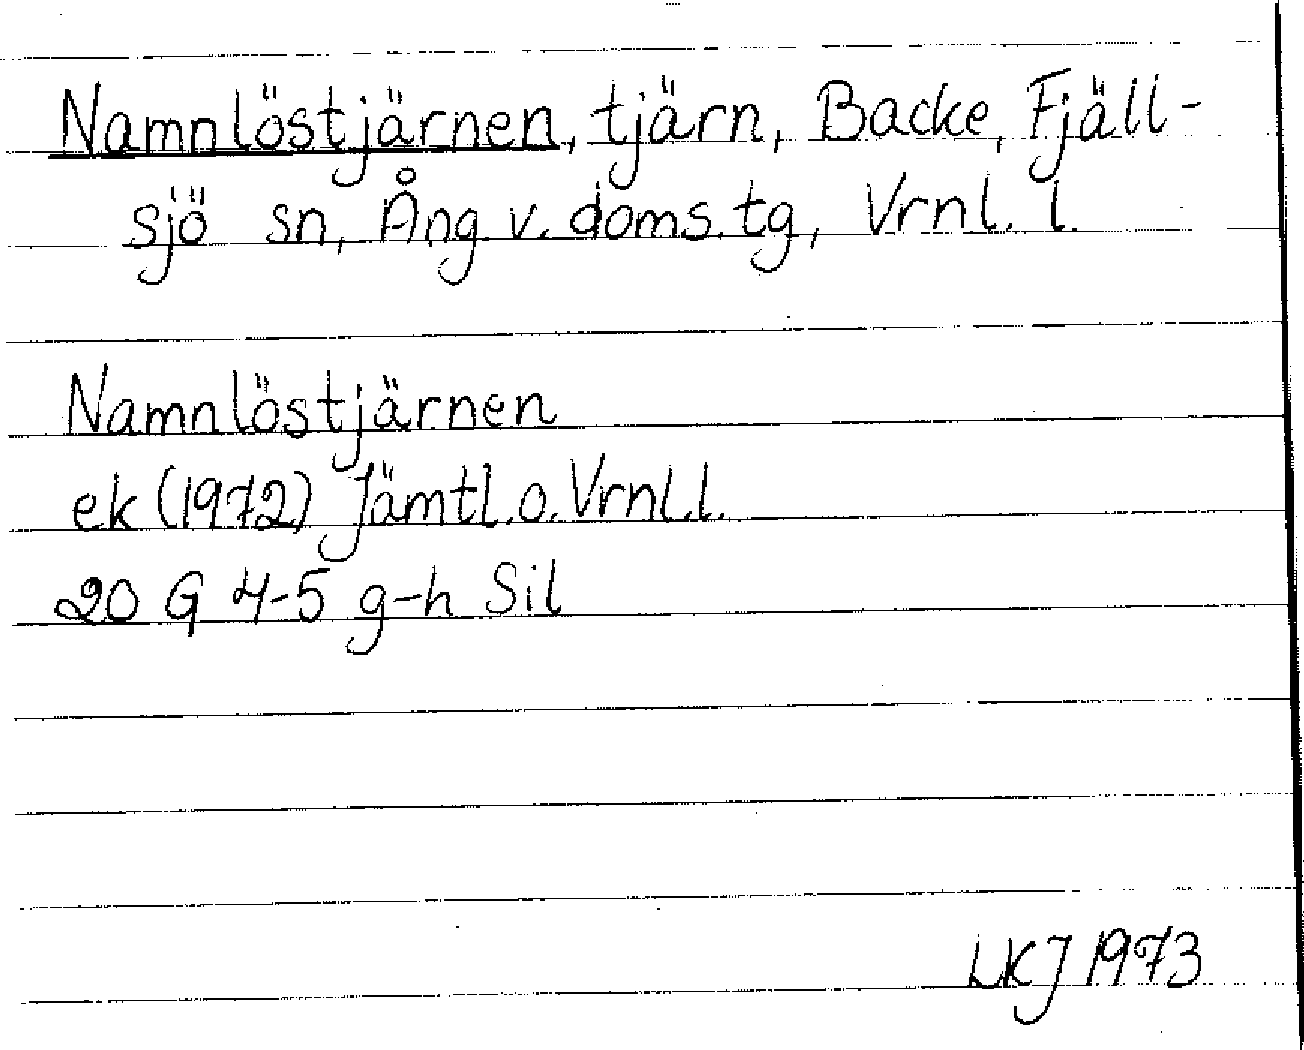 Namnlöstjärnen, tjärn, Backe, Fjäll-
sjö sn, Ång v. doms. tg, Vrnl. l.
Namnlöstjärnen
ek (1972) Jämtl. o. Vrnl. l.
20 G 4-5 g-h Sil
LKJ 1973